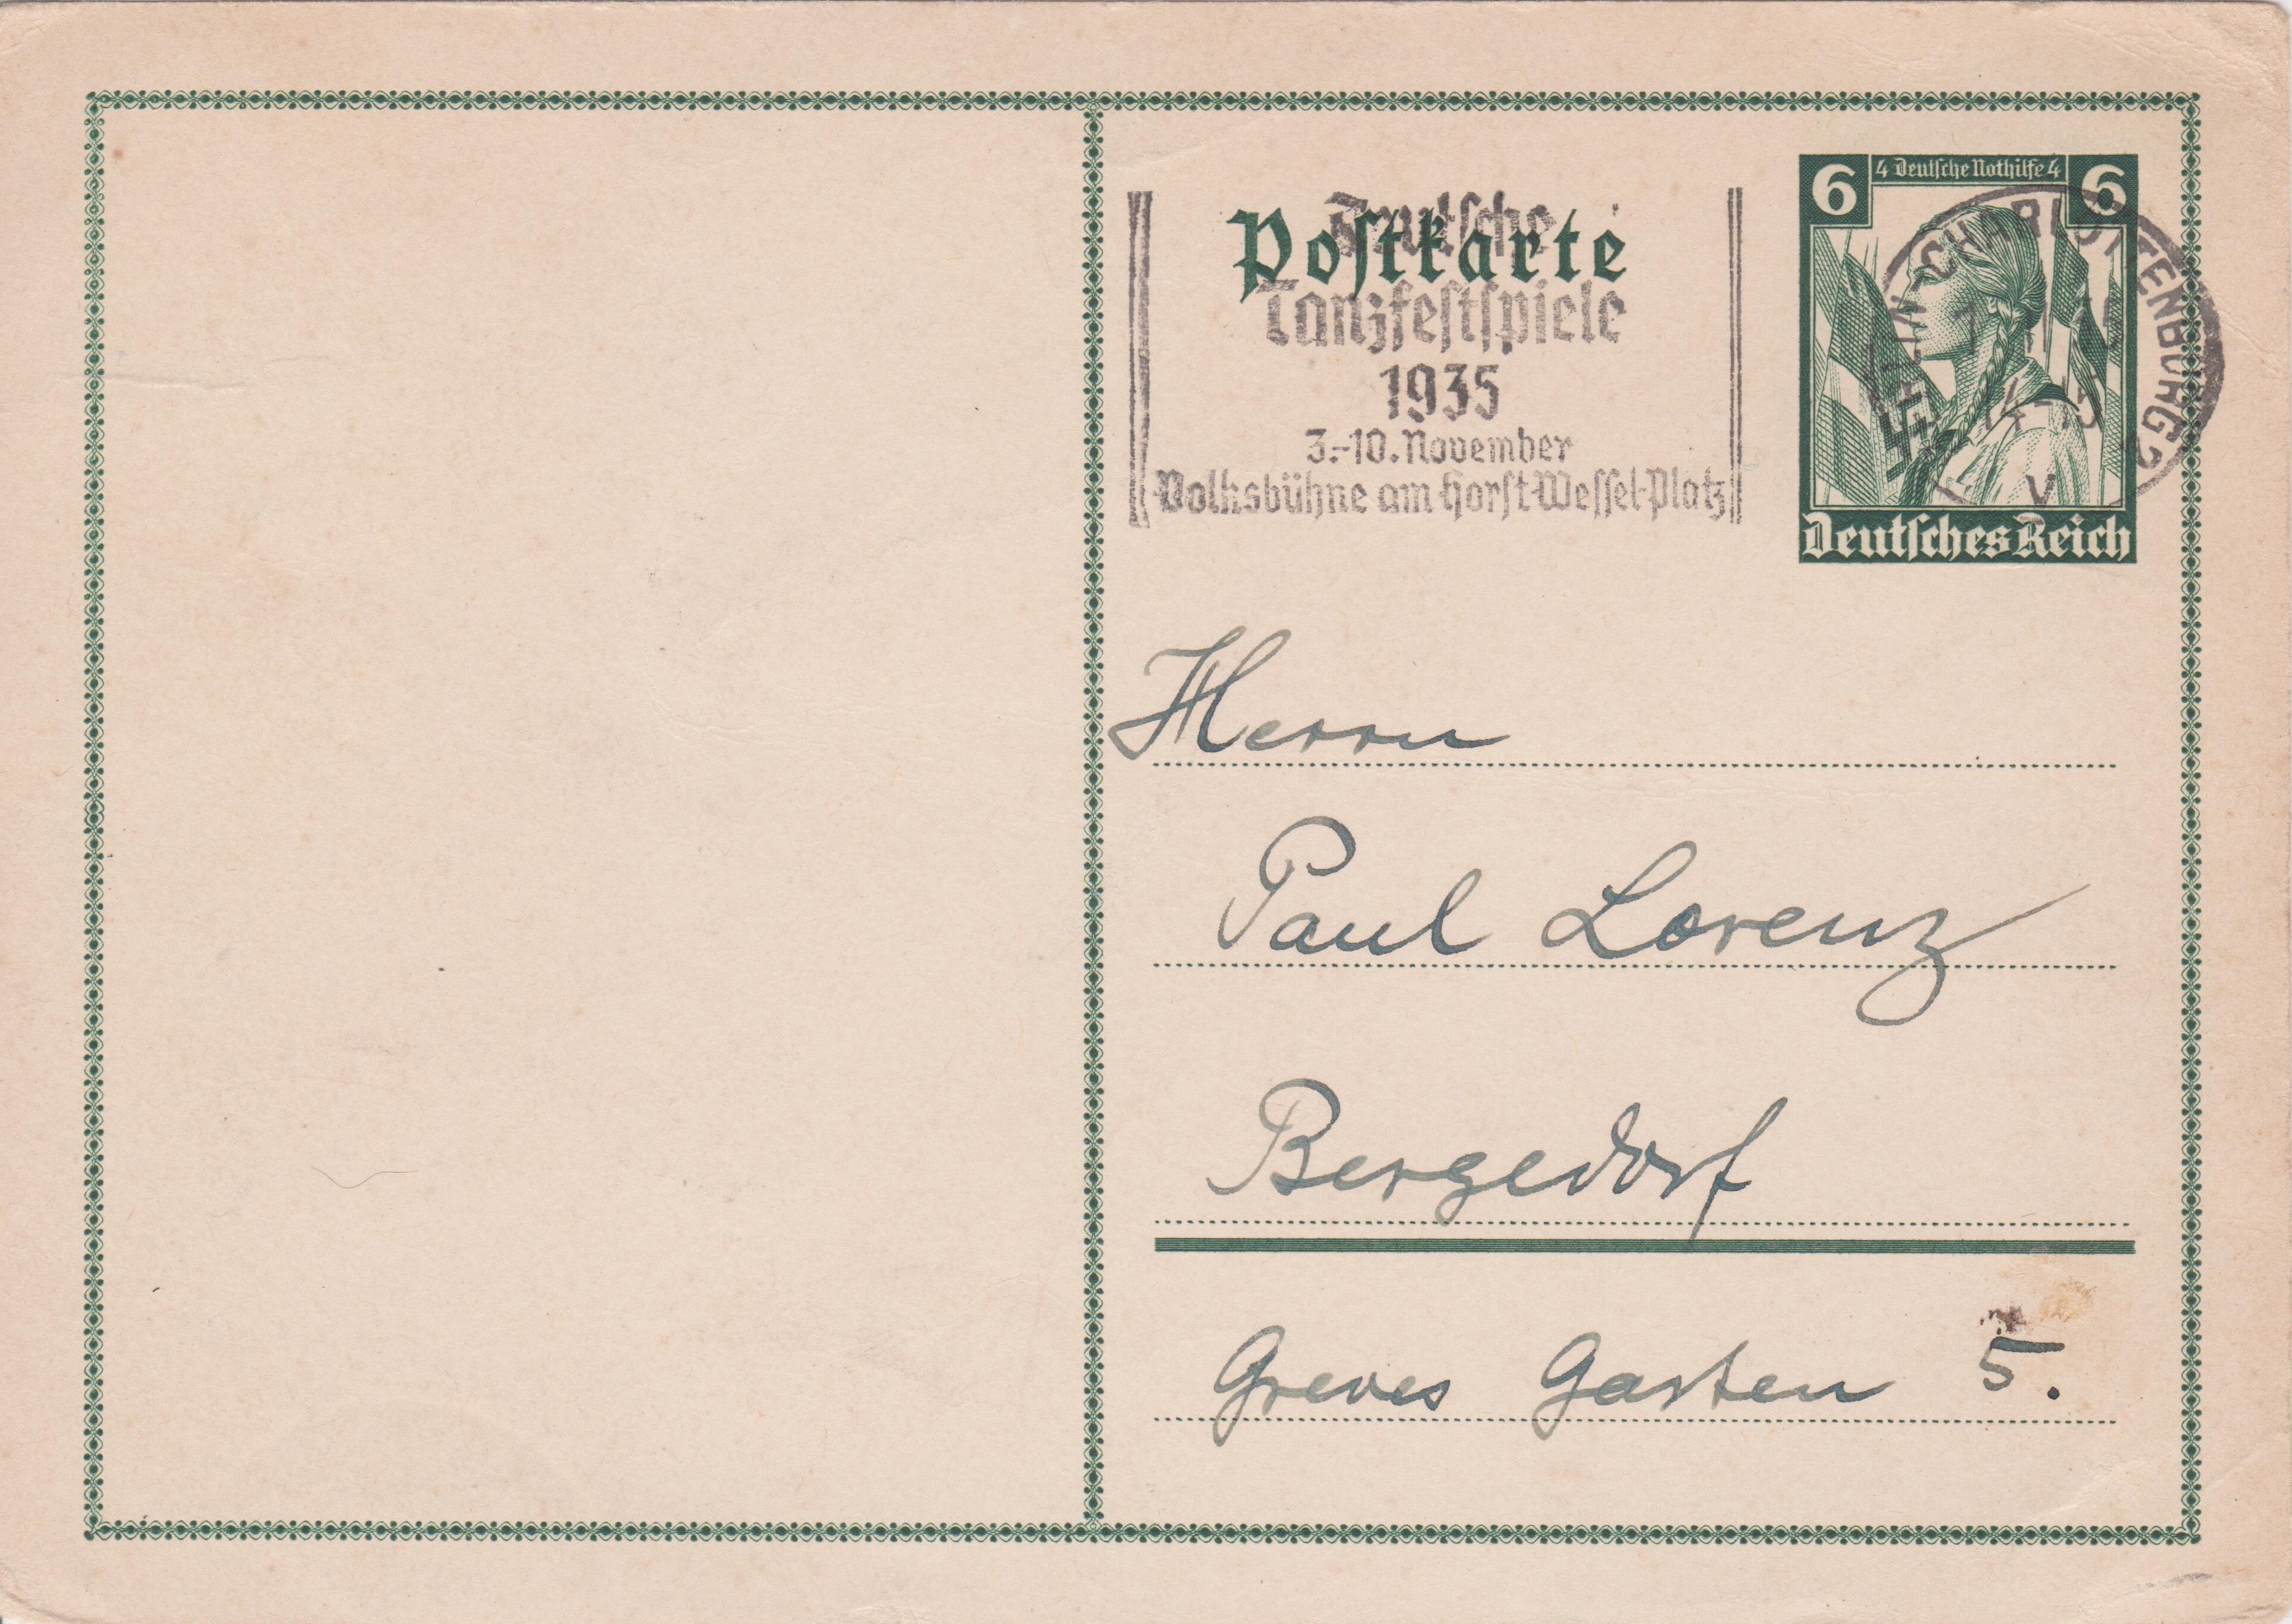 6 4 Deutsche Nothilfe 4 6
Deutsche
Postkarte
Tanzfestspiele
1935
3.-10. November
Volksbühne am Horst-Wessel-Platz
BERLIN-CHARLOTTENBURG 2
V
Deutsches Reich
Herrn
Paul Lorenz
Bergedorf
Greves Garten 5.